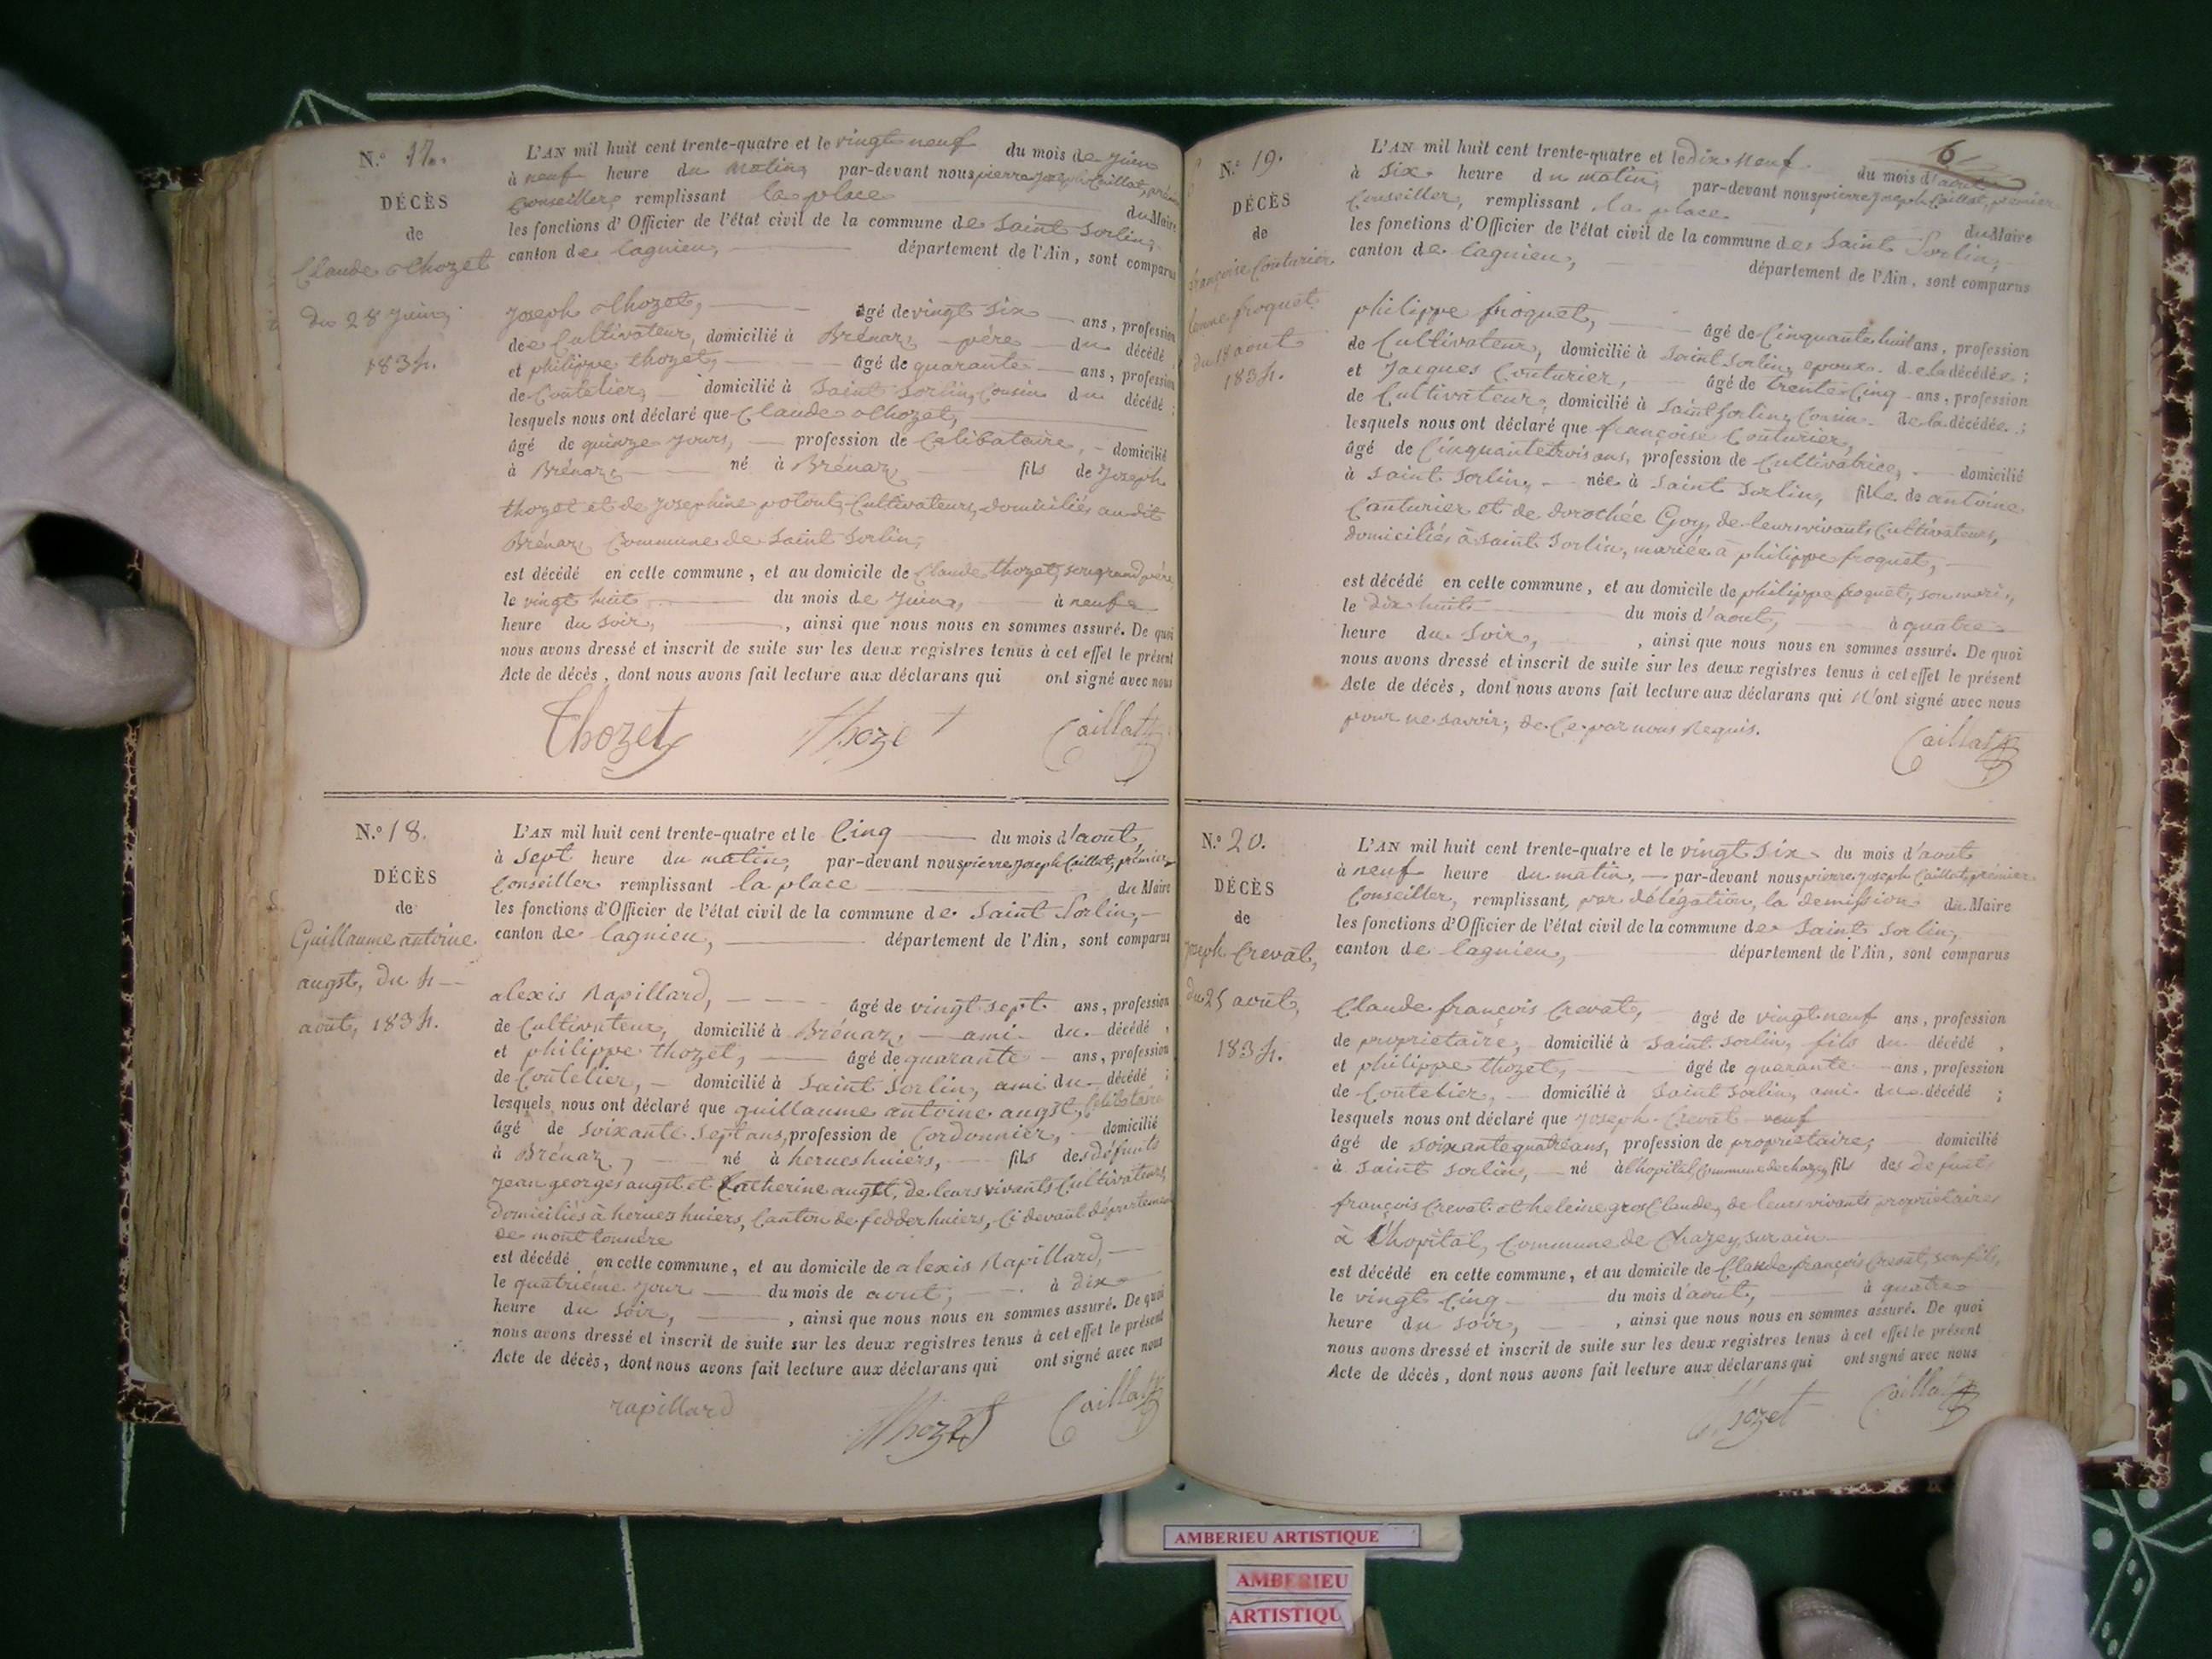 N.° 17.
DÉCÈS
de
Claude Thozet
du 28 Juin,
1834.
L'AN mil huit cent trente-quatre et le vingt neuf du mois de Juin
à neuf heure du matin, par-devant nous pierre Joseph Caillat, prémier
Conseiller, remplissant la place du Maire
les fonctions d'Officier de l'état civil de la commune de Saint Sorlin,
canton de Lagnieu, département de l'Ain, sont comparus
Joseph Thozet, âgé de vingt Six ans, profession
de Cultivateur, domicilié à Brénaz, père du décédé
et philippe thozet, âgé de quarante ans, profession
de Coutelier, domicilié à Saint Sorlin, Cousin du décédé ;
lesquels nous ont déclaré que Claude Thozet,
âgé de quinze jours, profession de Célibataire, domicilié
à Brénaz, né à Brénaz fils de Joseph
thozet et de Josephine Cultivateurs, domiciliés audit
Brénaz Commune de Saint Sorlin,
est décédé en cette commune, et au domicile de Claude thozet, son grand père,
le vingt huit du mois de Juin, à neuf
heure du Soir, , ainsi que nous nous en sommes assuré. De quoi
nous avons dressé et inscrit de suite sur les deux registres tenus à cet effet le présent
Acte de décès, dont nous avons fait lecture aux déclarans qui ont signé avec nous
Thozet Thozet Caillat
N.° 18.
DÉCÈS
de
Guillaume antoine
augst, du 4
août, 1834.
L'AN mil huit cent trente-quatre et le Cinq du mois d'aout,
à Sept heure du matin, par-devant nous pierre Joseph Caillat, prémier
Conseiller remplissant la place du Maire
les fonctions d'Officier de l'état civil de la commune de Saint Sorlin,
canton de Lagnieu, département de l'Ain, sont comparus
alexis Rapillard, âgé de vingt sept ans, profession
de Cultivateur, domicilié à Brénaz, ami du décédé ,
et philippe thozet, âgé de quarante ans, profession
de Coutelier, domicilié à Saint Sorlin, ami du décédé ;
lesquels nous ont déclaré que guillaume antoine augst, Célibataire
âgé de soixante Sept ans, profession de Cordonnier, domicilié
à Brénaz, né à herneshuiers, fils des défunts
jean georges augst et Catherine augst, de leurs vivants Cultivateurs,
domiciliés à hernes huiers, Canton de fedderhuiers, Ci devant département
de mont tonnére
est décédé en cette commune, et au domicile de alexis Rapillard,
le quatriéme jour du mois de aout, à dix
heure du Soir, , ainsi que nous nous en sommes assuré. De quoi
nous avons dressé et inscrit de suite sur les deux registres tenus à cet effet le présent
Acte de décès, dont nous avons fait lecture aux déclarans qui ont signé avec nous
rapillard Thozet Caillat
6
N.° 19.
DÉCÈS
de
françoise Couturier
femme froquet
du 18 aout
1834.
L'AN mil huit cent trente-quatre et le dix Neuf du mois d'aout
à Six heure du matin, par-devant nous pierre Joseph Caillat, premier
Conseiller, remplissant la place du Maire
les fonctions d'Officier de l'état civil de la commune de Saint Sorlin,
canton de Lagnieu, département de l'Ain, sont comparus
philippe froquet, âgé de Cinquante huit ans, profession
de Cultivateur, domicilié à Saint Sorlin, epoux de la décédée ;
et Jacques Couturier, âgé de trente Cinq ans, profession
de Cultivateur, domicilié à Saint Sorlin, Cousin de la décédée ;
lesquels nous ont déclaré que françoise Couturier,
âgé de Cinquante trois ans, profession de Cultivatrice, domicilié
à Saint Sorlin, née à Saint Sorlin, fille de antoine
Couturier et de dorothée Goy, de leurs vivants Cultivateurs,
domiciliés à Saint Sorlin, mariée à philippe froquet,
est décédé en cette commune, et au domicile de philippe froquet, son mari,
le dix huit du mois d'aout, à quatre
heure du Soir, , ainsi que nous nous en sommes assuré. De quoi
nous avons dressé et inscrit de suite sur les deux registres tenus à cet effet le présent
Acte de décès, dont nous avons fait lecture aux déclarans qui N'ont signé avec nous
pour ne savoir, de Ce par nous Requis.
Caillat
N.° 20.
DÉCÈS
de
Joseph Crevat,
du 25 août,
1834.
L'AN mil huit cent trente-quatre et le vingt Six du mois d'aout
à neuf heure du matin, par-devant nous pierre Joseph Caillat, prémier
Conseiller, remplissant, par délégation, la demission du Maire
les fonctions d'Officier de l'état civil de la commune de Saint Sorlin,
canton de Lagnieu, département de l'Ain, sont comparus
Claude françois Crevat, âgé de vingt neuf ans, profession
de propriétaire, domicilié à Saint Sorlin, fils du décédé ,
et philippe thozet, âgé de quarante ans, profession
de Coutelier, domicilié à Saint Sorlin, ami du décédé ;
lesquels nous ont déclaré que Joseph Crevat veuf
âgé de soixante quatre ans, profession de propriétaire, domicilié
à Saint Sorlin, né à l'hopital, Commune de chazey, fils des défunts
françois Crevat et heleine gros Claude, de leurs vivants propriétaires
à l'hopital, Commune de Chazey, sur ain
est décédé en cette commune, et au domicile de Claude françois Crevat, son fils,
le vingt Cinq du mois d'aout, à quatre
heure du soir, , ainsi que nous nous en sommes assuré. De quoi
nous avons dressé et inscrit de suite sur les deux registres tenus à cet effet le présent
Acte de décès, dont nous avons fait lecture aux déclarans qui ont signé avec nous
Thozet Caillat
AMBERIEU ARTISTIQUE
AMBERIEU
ARTISTIQU